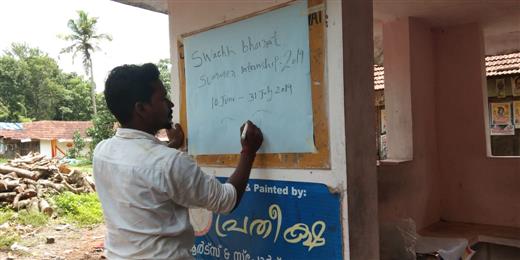 Swachh bharat
Summer internship:2019
10 June - 31 July 2019
& Painted by:
പ്രതീക്ഷ
ആർട്സ് & സ്പോർട്സ്